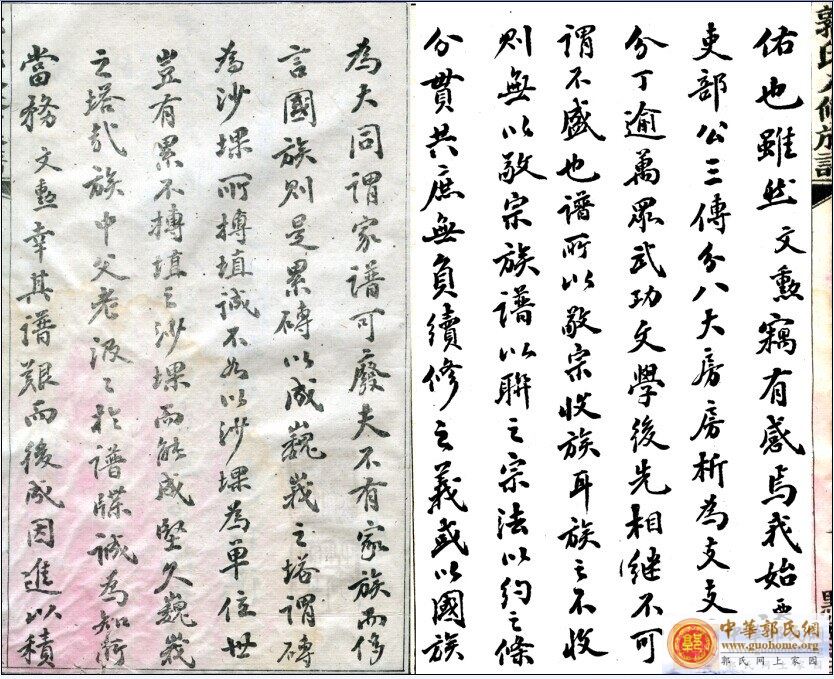 郭氏八修族譜
佑也雖然文勳竊有感焉我始
吏部公三傳分八大房房析為支支
分丁逾萬眾武功文學後先相繼不可
謂不盛也譜所以敬宗收族耳族之不收
則無以敬宗族譜以聯之宗法以約之條
分貫共庶無負續修之義或以國族
為大同謂家譜可廢夫不有家族而侈
言國族則是累磚以成巍峩之塔謂磚
為沙堁所摶埴誠不如以沙堁為單位世
豈有累不摶埴之沙堁而能成堅久巍峩
之塔哉族中父老汲〻於譜牒誠為知所
當務文勳幸其譜艱而後成因進以積
中華郭氏網
www.guohome.org
郭氏网上家园